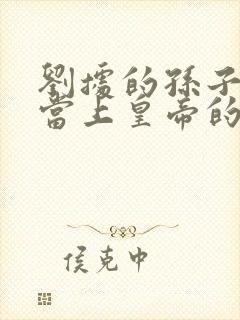 劉據的孫子
當上皇帝的
侯克中